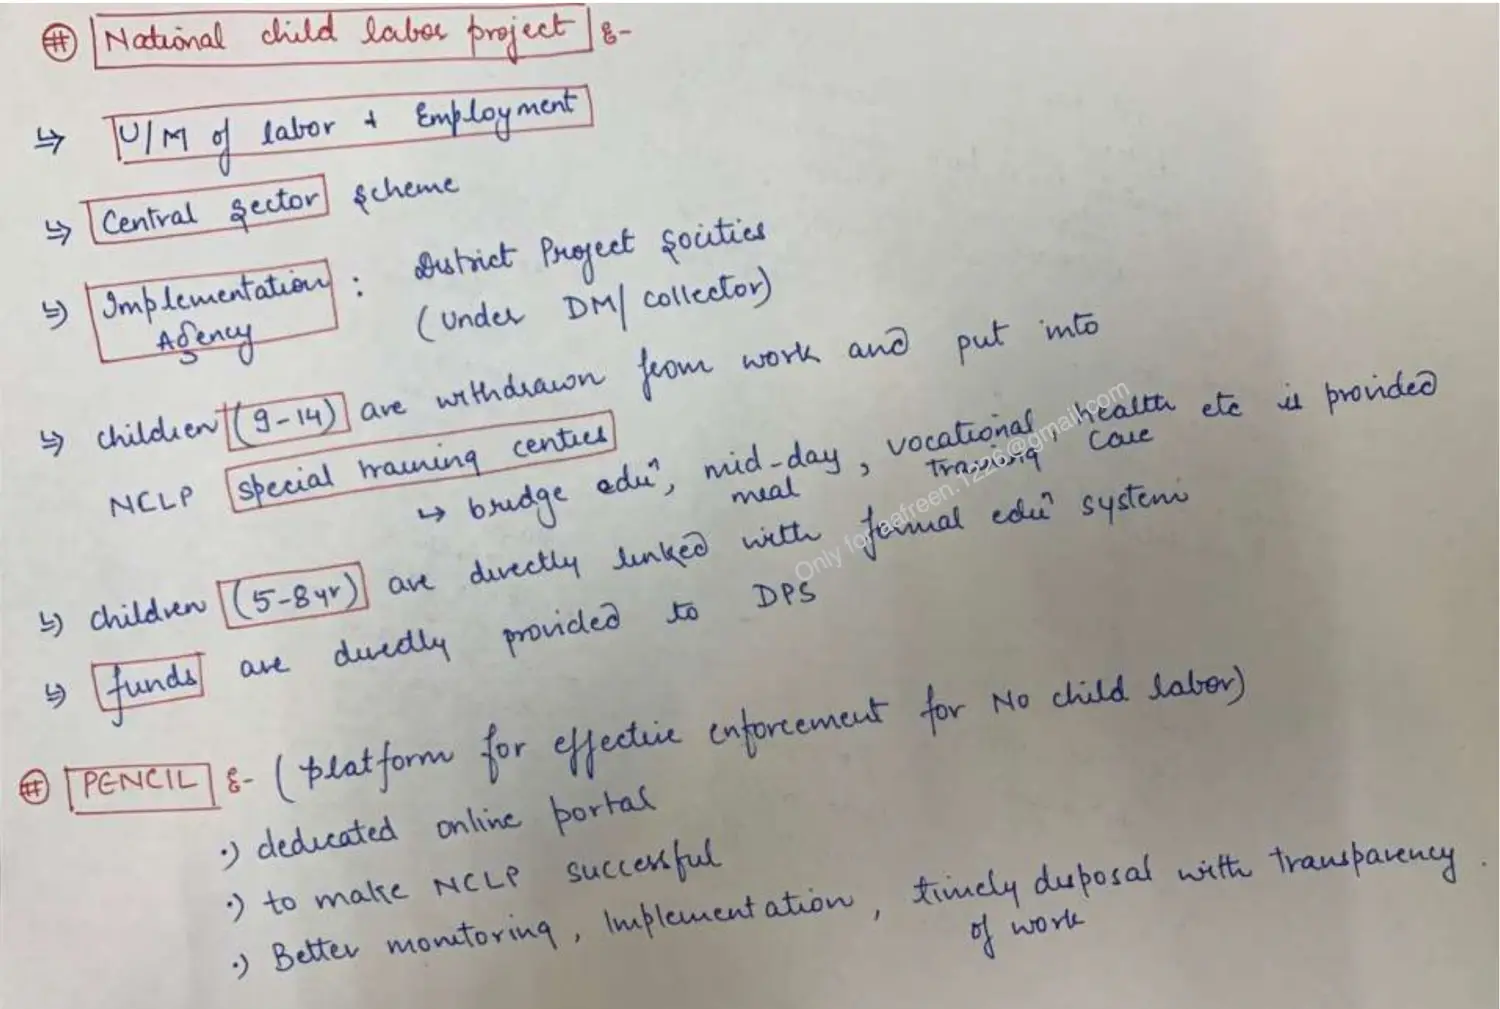 # National child labor project :-
↳ U/M of labor + Employment
↳ Central Sector scheme
↳ Implementation Agency : District Project Socities
(Under DM/collector)
↳ children (9-14) are withdrawn from work and put into
NCLP special training centres
↳ bridge eduⁿ, mid-day meal, vocational training, health care etc is provided
↳ children (5-8yr) are directly linked with formal eduⁿ system
↳ funds are directly provided to DPS
# PENCIL :- (platform for effective enforcement for No child labor)
.) dedicated online portal
.) to make NCLP successful
.) Better monitoring, Implementation, timely disposal with transparency of work.
Only for aafreen.1226@gmail.com